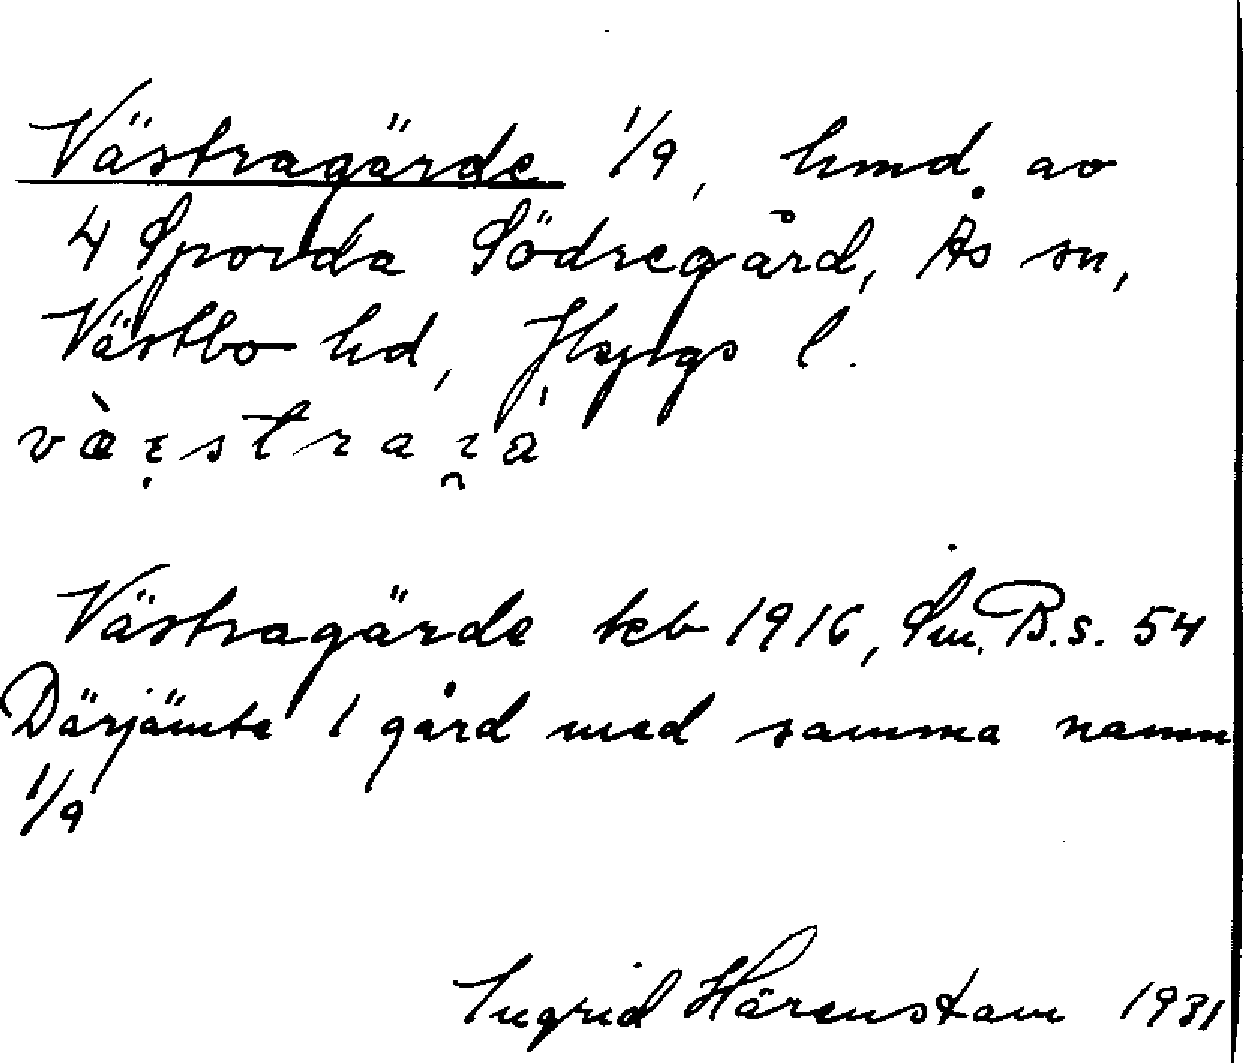 Västragärde 1/9, hmd. av
4 Sporda Södregård, Ås sn,
Västbo hd, Jkpgs l.
Västragärde teb 1916, Sm. B. s. 54
Därjämte 1 gård med samma namn
1/9
Ingrid Härenstam 1931